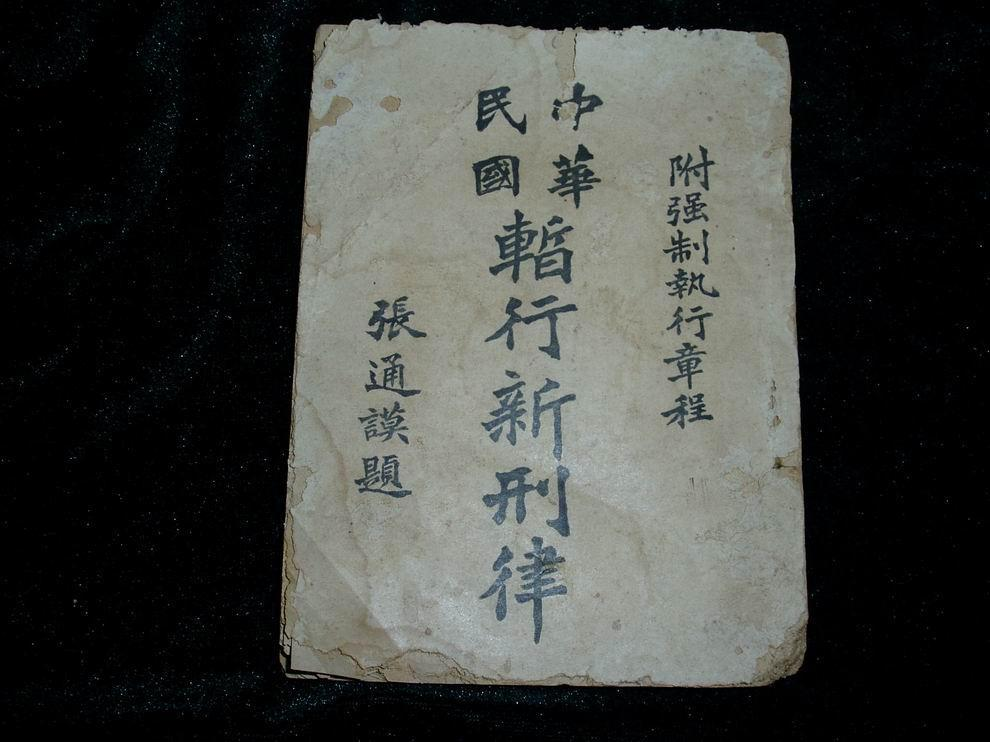 附强制執行章程
中華
民國
暫行新刑律
張通謨題